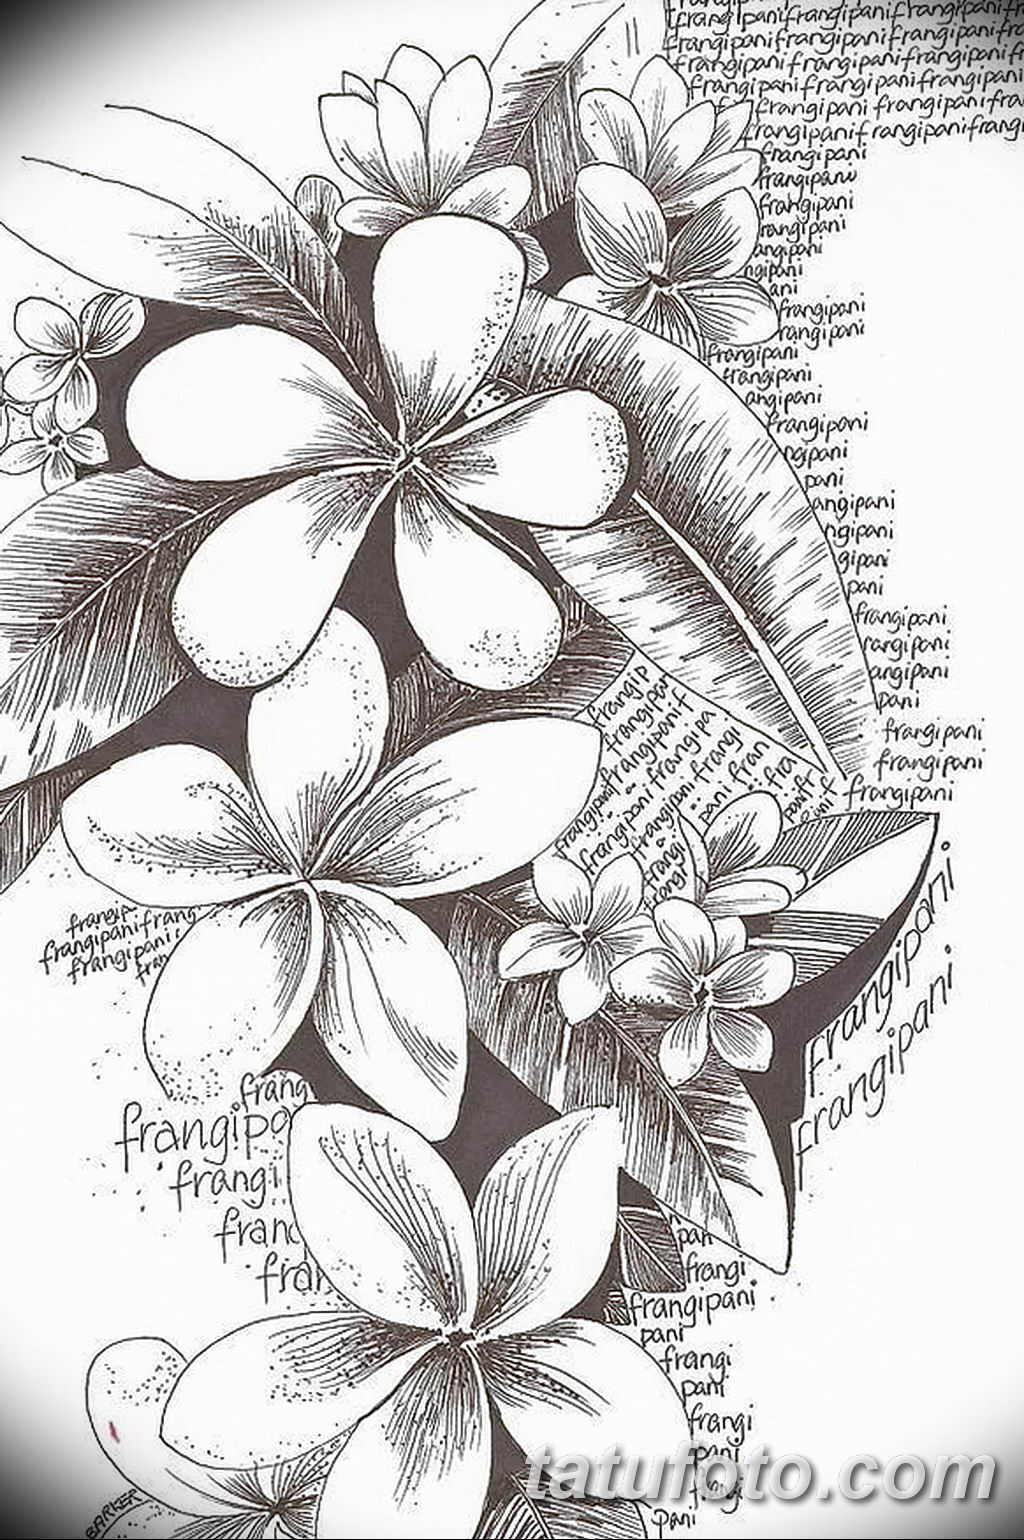 frangipanifrangipanifrangipani
frangipanifrangipanifrangipani
frangipanifrangipanifrangipani
frangipanifrangipanifrangipani
frangipani frangipanifra
frangipanifrangipanifrangi
frangipani
frangipani
frangipani
rangipani
angipani
ngipani
ani
frangipani
rangipani
frangipani
frangipani
angipani
frangipani
ngipani
pani
angipani
ngipani
gipani
pani
frangipani
rangipani
angipani
pani
frangipani
frangipani
frangipani
frangip
frangipan
frangipani f
frangipanifrangipa
frangipani frangi
frangipani fran
frangi
frangip
frangipanifrang
frangipani
fran
frangipani
frangipani
frang
frangipa
frangi
frang
fran
pan
frangi
frangipani
pani
frangi
pani
frangi
pani
frangi
pani
BARKER
tatufoto.com